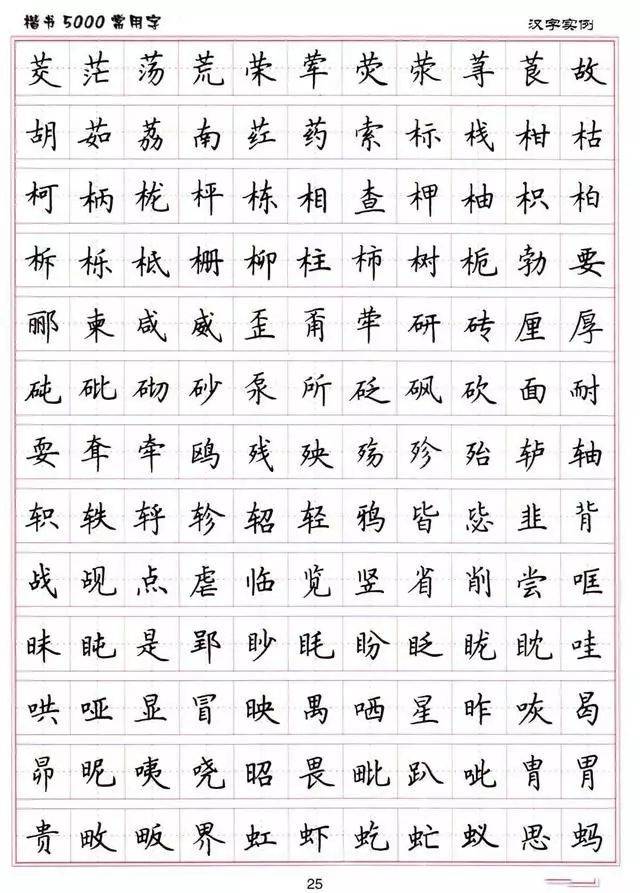 楷书5000常用字 汉字实例
茭茫荡荒荣荤荧荥荨茛故
胡茹荔南荭药索标栈柑枯
柯柄栊枰栋相查柙柚枳柏
柝栎柢栅柳柱柿树栀勃要
郦柬咸威歪甭荦研砖厘厚
砘砒砌砂泵所砭砜砍面耐
耍耷牵鸥残殃殇殄殆轳轴
轵轶轷轸轺轻鸦皆毖韭背
战觇点虐临览竖省削尝哐
昧盹是郢眇眊盼眨昽眈哇
哄哑显冒映禺哂星昨咴曷
昴昵咦哓昭畏毗趴呲胄胃
贵畋畈界虹虾虼虻蚁思蚂
25